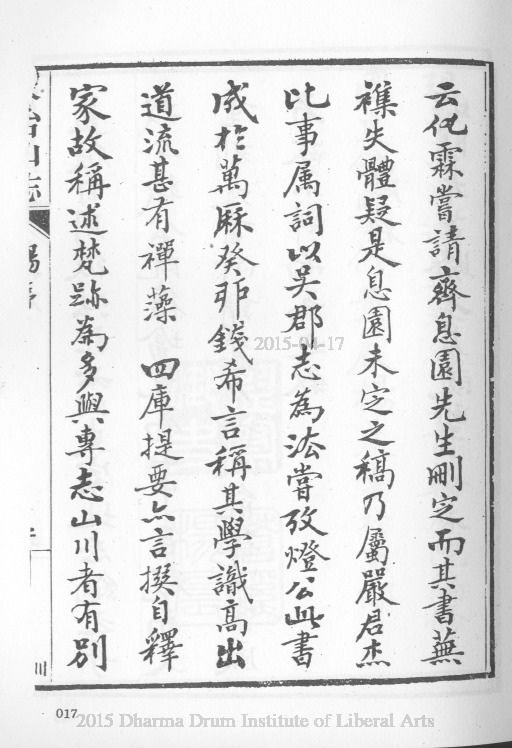 云化霖嘗請齊息園先生刪定而其書蕪
襍失體疑是息園未定之稿乃屬嚴君杰
比事属詞以吴郡志為法嘗攷燈公此書
成於萬厤癸丑錢希言稱其學識高出
道流甚有禪藻 四庫提要亦言撰自釋
家故稱述梵跡為多與專志山川者有別
2015-04-17
017
2015 Dharma Drum Institute of Liberal Arts